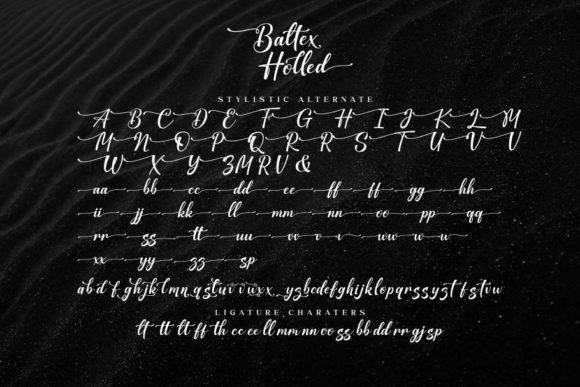 Baltex
Holled
STYLISTIC ALTERNATE
A B C D E F G H I J K L M
M N O P Q R R S T U V V
W X Y Z M R U &
aa bb cc dd ee ff ff gg hh
ii jj kk ll mm nn oo pp qq
rr ss tt uu vv v v ww w u
xx yy zz sp
LIGATURE CHARATERS
lt tt lt ff th cc ee ll mm nn oo ss bb dd rr gj sp